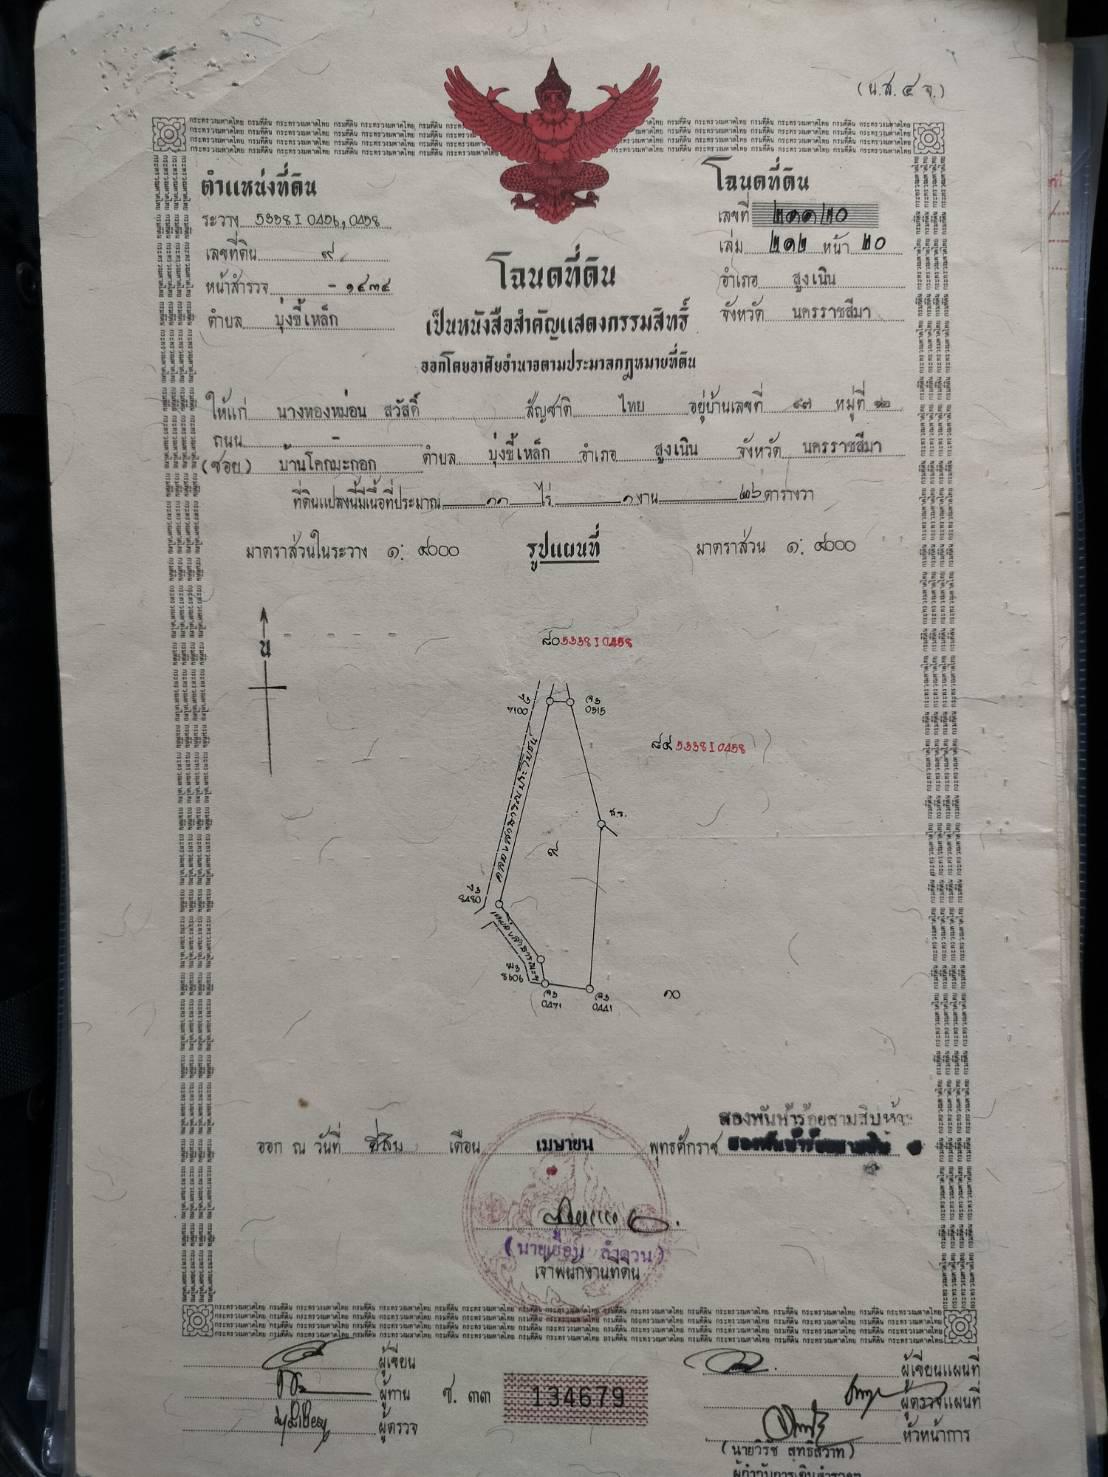 (น.ส. ๔ จ.)
ตำแหน่งที่ดิน
ระวาง 5338 I 0456, 0458
เลขที่ดิน ๙
หน้าสำรวจ - ๑๔๓๔
ตำบล บุ่งขี้เหล็ก
โฉนดที่ดิน
เลขที่ ๒๑๑๒๐
เล่ม ๒๑๒ หน้า ๒๐
อำเภอ สูงเนิน
จังหวัด นครราชสีมา
โฉนดที่ดิน
เป็นหนังสือสำคัญแสดงกรรมสิทธิ์
ออกโดยอาศัยอำนาจตามประมวลกฎหมายที่ดิน
ให้แก่ นางทองหม่อน สวัสดิ์ สัญชาติ ไทย อยู่บ้านเลขที่ ๘๗ หมู่ที่ ๑๒
ถนน -
(ซอย) บ้านโคกมะกอก ตำบล บุ่งขี้เหล็ก อำเภอ สูงเนิน จังหวัด นครราชสีมา
ที่ดินแปลงนี้มีเนื้อที่ประมาณ ๑๑ ไร่ ๑ งาน ๒๖ ตารางวา
มาตราส่วนในระวาง ๑: ๔๐๐๐ รูปแผนที่ มาตราส่วน ๑: ๔๐๐๐
น
๘๐ 5338 I 0458
0315
๘๔ 5338 I 0458
คลองสาธารณประโยชน์
๙
0471
0441
๑๐
สองพันห้าร้อยสามสิบห้า
ออก ณ วันที่ ยี่สิบ เดือน เมษายน พุทธศักราช
เจ้าพนักงานที่ดิน
ผู้เขียน
ผู้ทาน
ผู้ตรวจ
ช. ๓๓ 134679
ผู้เขียนแผนที่
ผู้ตรวจแผนที่
หัวหน้าการ